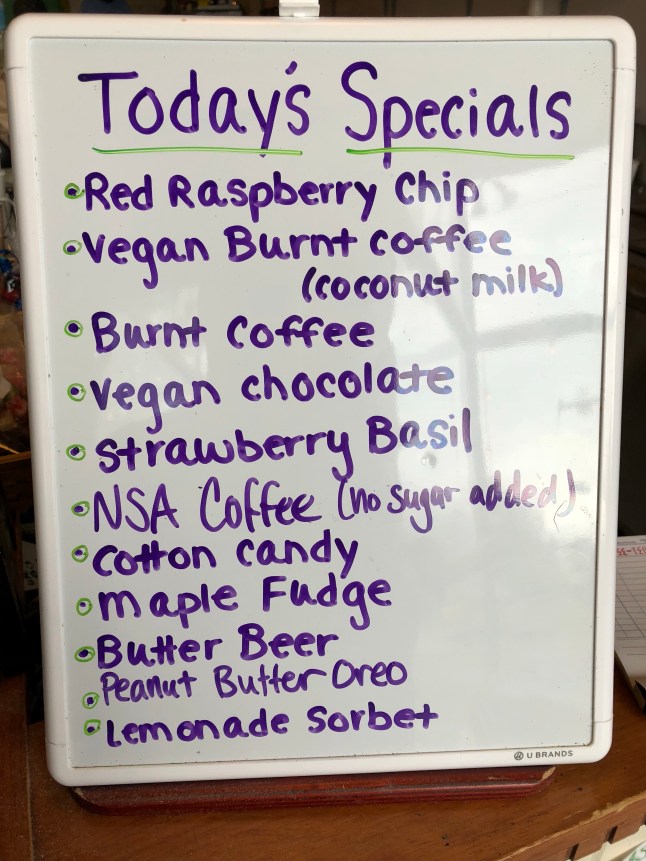 Today's Specials
• Red Raspberry Chip
• Vegan Burnt coffee
(coconut milk)
• Burnt Coffee
• Vegan chocolate
• Strawberry Basil
• NSA Coffee (no sugar added)
• Cotton candy
• maple Fudge
• Butter Beer
• Peanut Butter Oreo
• Lemonade Sorbet
U BRANDS